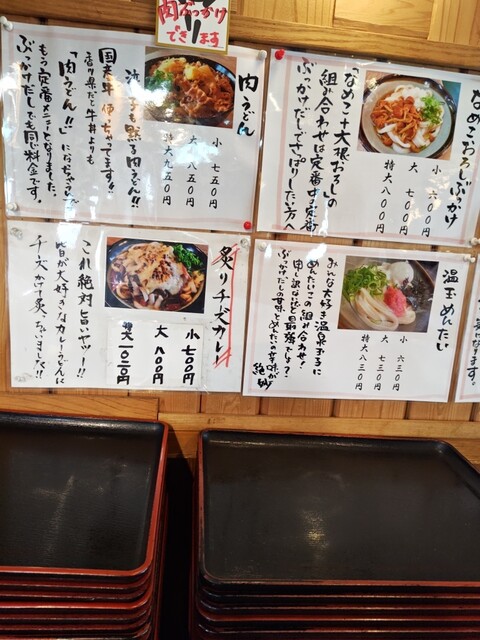 肉ぶっかけ
できます
肉うどん
小 七五〇円
大 八五〇円
特大 九五〇円
泣く子も黙る肉うどん!!
国産牛使ってます!!
香川県だと牛丼よりも
「肉うどん!!」になっちゃうんで
もう定番メニューとなりました。
ぶっかけだしでも同じ料金です。
なめこおろしぶっかけ
小 六〇〇円
大 七〇〇円
特大 八〇〇円
「なめこ+大根おろしの
組み合わせは定番中の定番
ぶっかけだしでさっぱりしたい方へ
炙りチーズカレー
小 七〇〇円
大 八〇〇円
特大
これ絶対旨いヤツー!!
皆が大好きなカレーうどんに
チーズかけ炙っちゃいました!!
温玉めんたい
小 六三〇円
大 七三〇円
特大 八三〇円
みんな大好き温泉玉子に
めんたいこの組み合わせ!
申し訳ないほど最強でしょ?
ぶっかけだしの甘味とめんたいの辛味が
絶妙